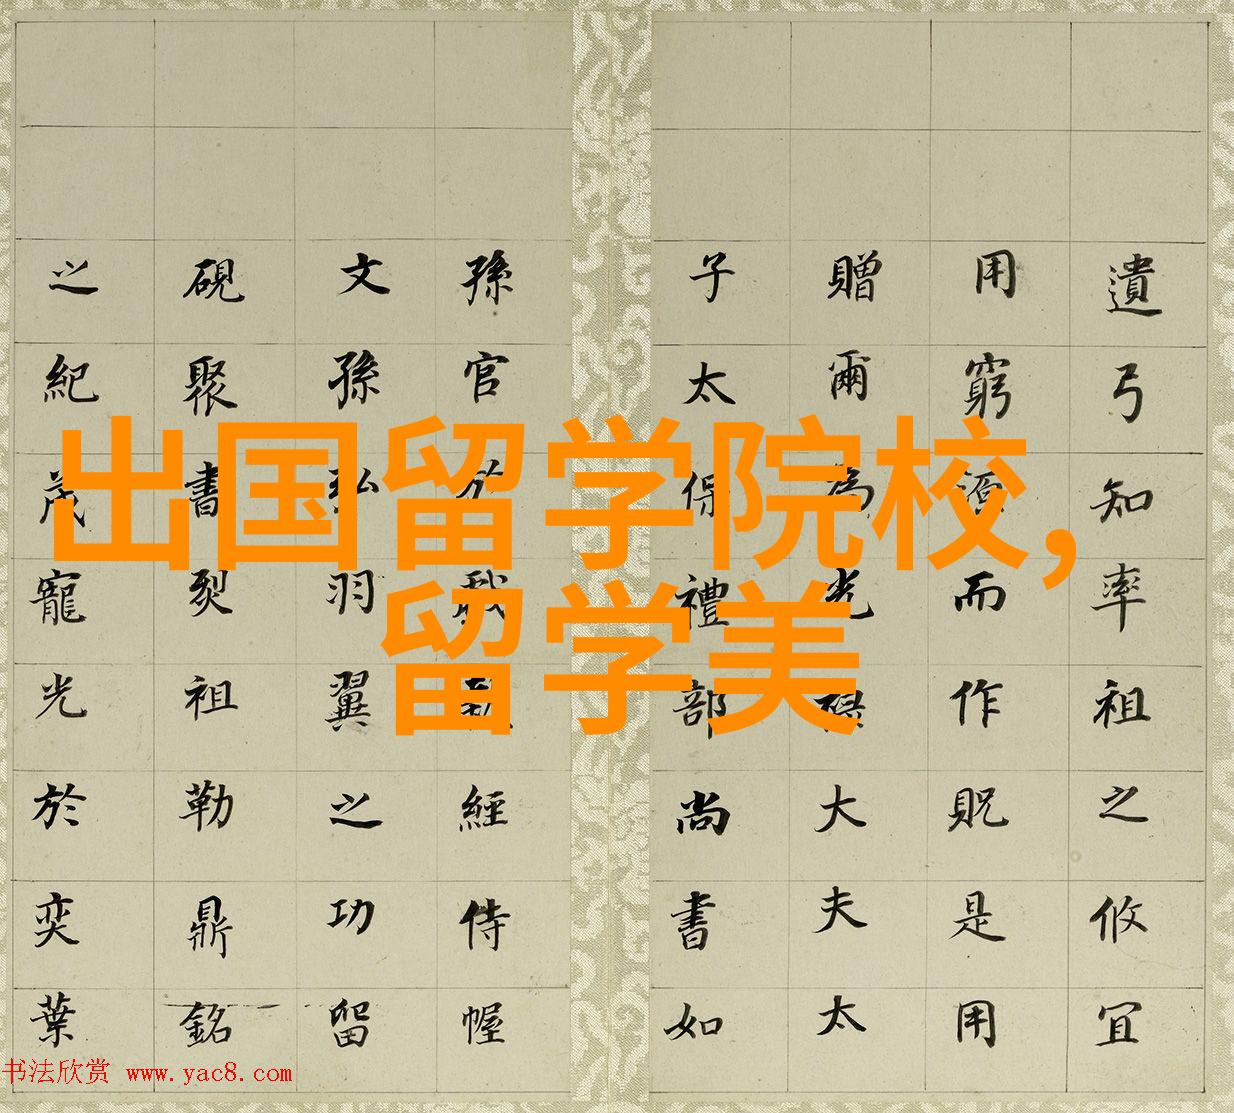 出国留学院校,
留学美
遺弓知率祖之攸宜
用窮而作貺是用
贈爾為光祿大夫太
子太保禮部尚書如
孫官經侍幄
文孫弘羽翼之功留
硯聚書裂祖勒鼎銘
之紀茂寵光於奕葉
书法欣赏 www.yac8.com